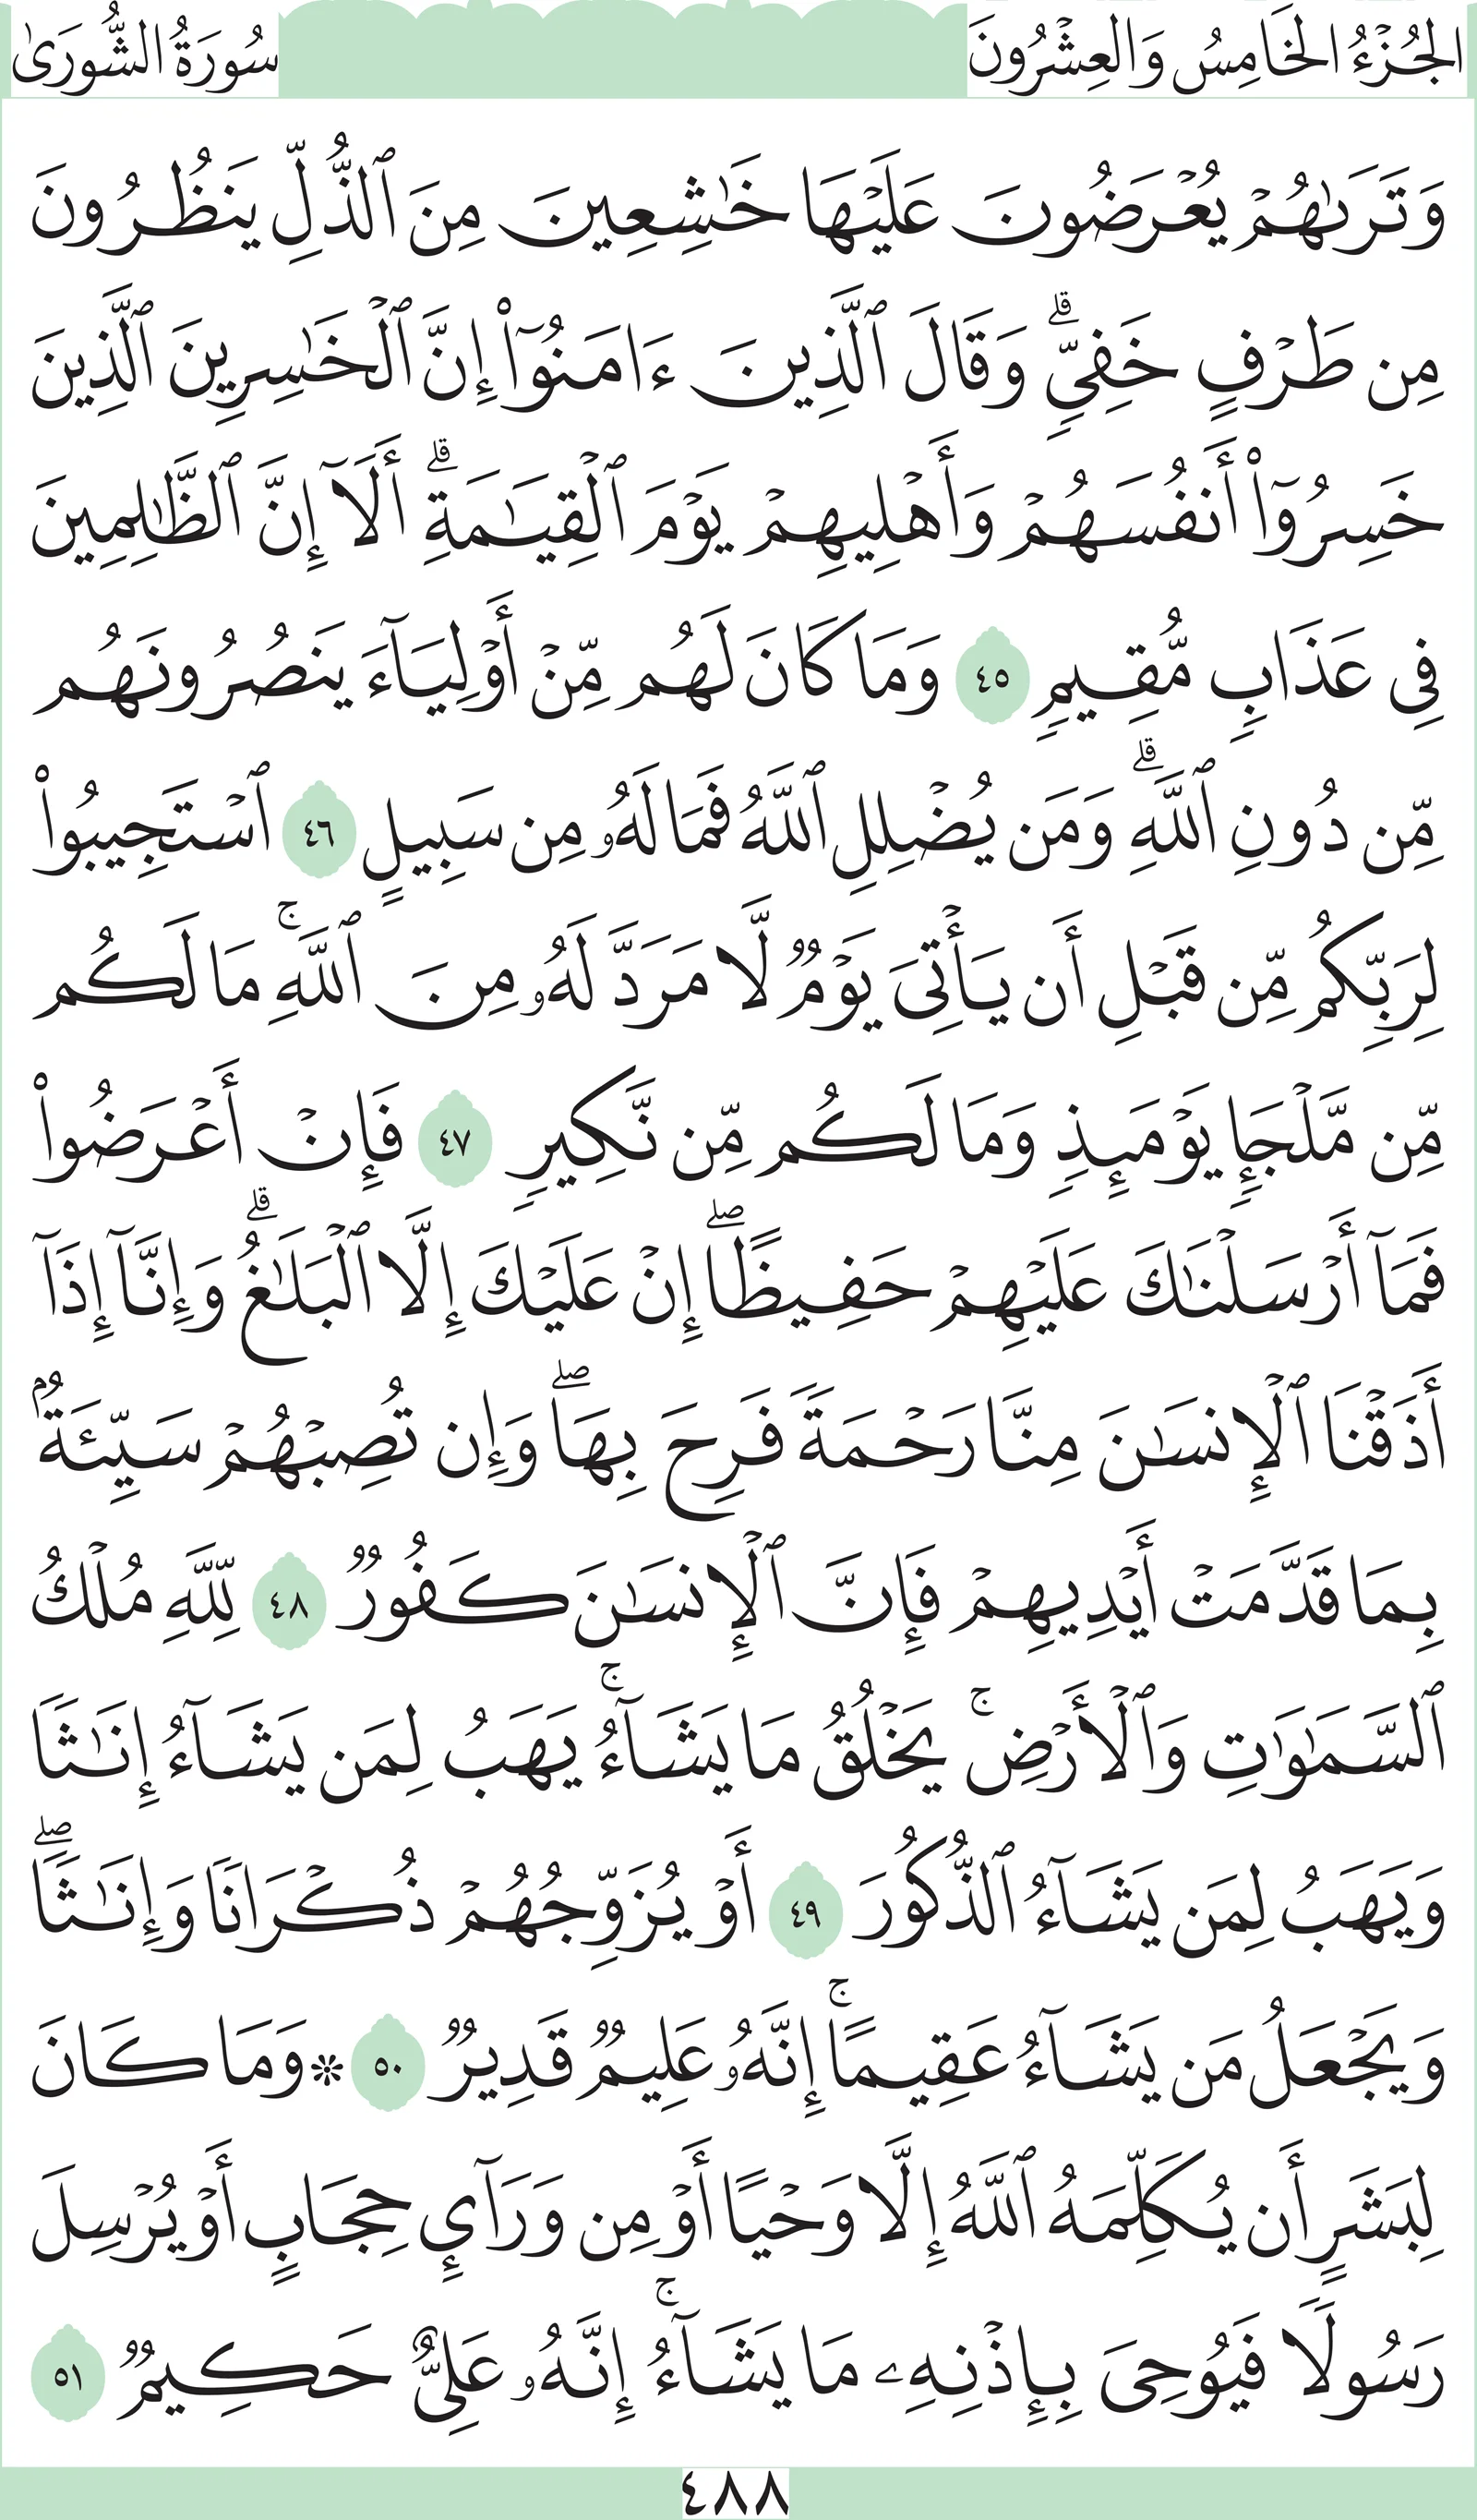 الجُزْءُ الخَامِسُ وَالعِشْرُونَ سُورَةُ الشُّورَىٰ
وَتَرَىٰهُمْ يُعْرَضُونَ عَلَيْهَا خَٰشِعِينَ مِنَ ٱلذُّلِّ يَنظُرُونَ
مِن طَرْفٍ خَفِيٍّۗ وَقَالَ ٱلَّذِينَ ءَامَنُوٓا۟ إِنَّ ٱلْخَٰسِرِينَ ٱلَّذِينَ
خَسِرُوٓا۟ أَنفُسَهُمْ وَأَهْلِيهِمْ يَوْمَ ٱلْقِيَٰمَةِۗ أَلَآ إِنَّ ٱلظَّٰلِمِينَ
فِى عَذَابٍ مُّقِيمٍ ٤٥ وَمَا كَانَ لَهُم مِّنْ أَوْلِيَآءَ يَنصُرُونَهُم
مِّن دُونِ ٱللَّهِۗ وَمَن يُضْلِلِ ٱللَّهُ فَمَا لَهُۥ مِن سَبِيلٍ ٤٦ ٱسْتَجِيبُوا۟
لِرَبِّكُم مِّن قَبْلِ أَن يَأْتِىَ يَوْمٌ لَّا مَرَدَّ لَهُۥ مِنَ ٱللَّهِۚ مَا لَكُم
مِّن مَّلْجَإٍ يَوْمَئِذٍ وَمَا لَكُم مِّن نَّكِيرٍ ٤٧ فَإِنْ أَعْرَضُوا۟
فَمَآ أَرْسَلْنَٰكَ عَلَيْهِمْ حَفِيظًاۖ إِنْ عَلَيْكَ إِلَّا ٱلْبَلَٰغُۗ وَإِنَّآ إِذَآ
أَذَقْنَا ٱلْإِنسَٰنَ مِنَّا رَحْمَةً فَرِحَ بِهَاۖ وَإِن تُصِبْهُمْ سَيِّئَةُۢ
بِمَا قَدَّمَتْ أَيْدِيهِمْ فَإِنَّ ٱلْإِنسَٰنَ كَفُورٌ ٤٨ لِّلَّهِ مُلْكُ
ٱلسَّمَٰوَٰتِ وَٱلْأَرْضِۚ يَخْلُقُ مَا يَشَآءُۚ يَهَبُ لِمَن يَشَآءُ إِنَٰثًا
وَيَهَبُ لِمَن يَشَآءُ ٱلذُّكُورَ ٤٩ أَوْ يُزَوِّجُهُمْ ذُكْرَانًا وَإِنَٰثًاۖ
وَيَجْعَلُ مَن يَشَآءُ عَقِيمًاۚ إِنَّهُۥ عَلِيمٌ قَدِيرٌ ٥٠ ۞ وَمَا كَانَ
لِبَشَرٍ أَن يُكَلِّمَهُ ٱللَّهُ إِلَّا وَحْيًا أَوْ مِن وَرَآئِ حِجَابٍ أَوْ يُرْسِلَ
رَسُولًا فَيُوحِىَ بِإِذْنِهِۦ مَا يَشَآءُۚ إِنَّهُۥ عَلِىٌّ حَكِيمٌ ٥١
٤٨٨